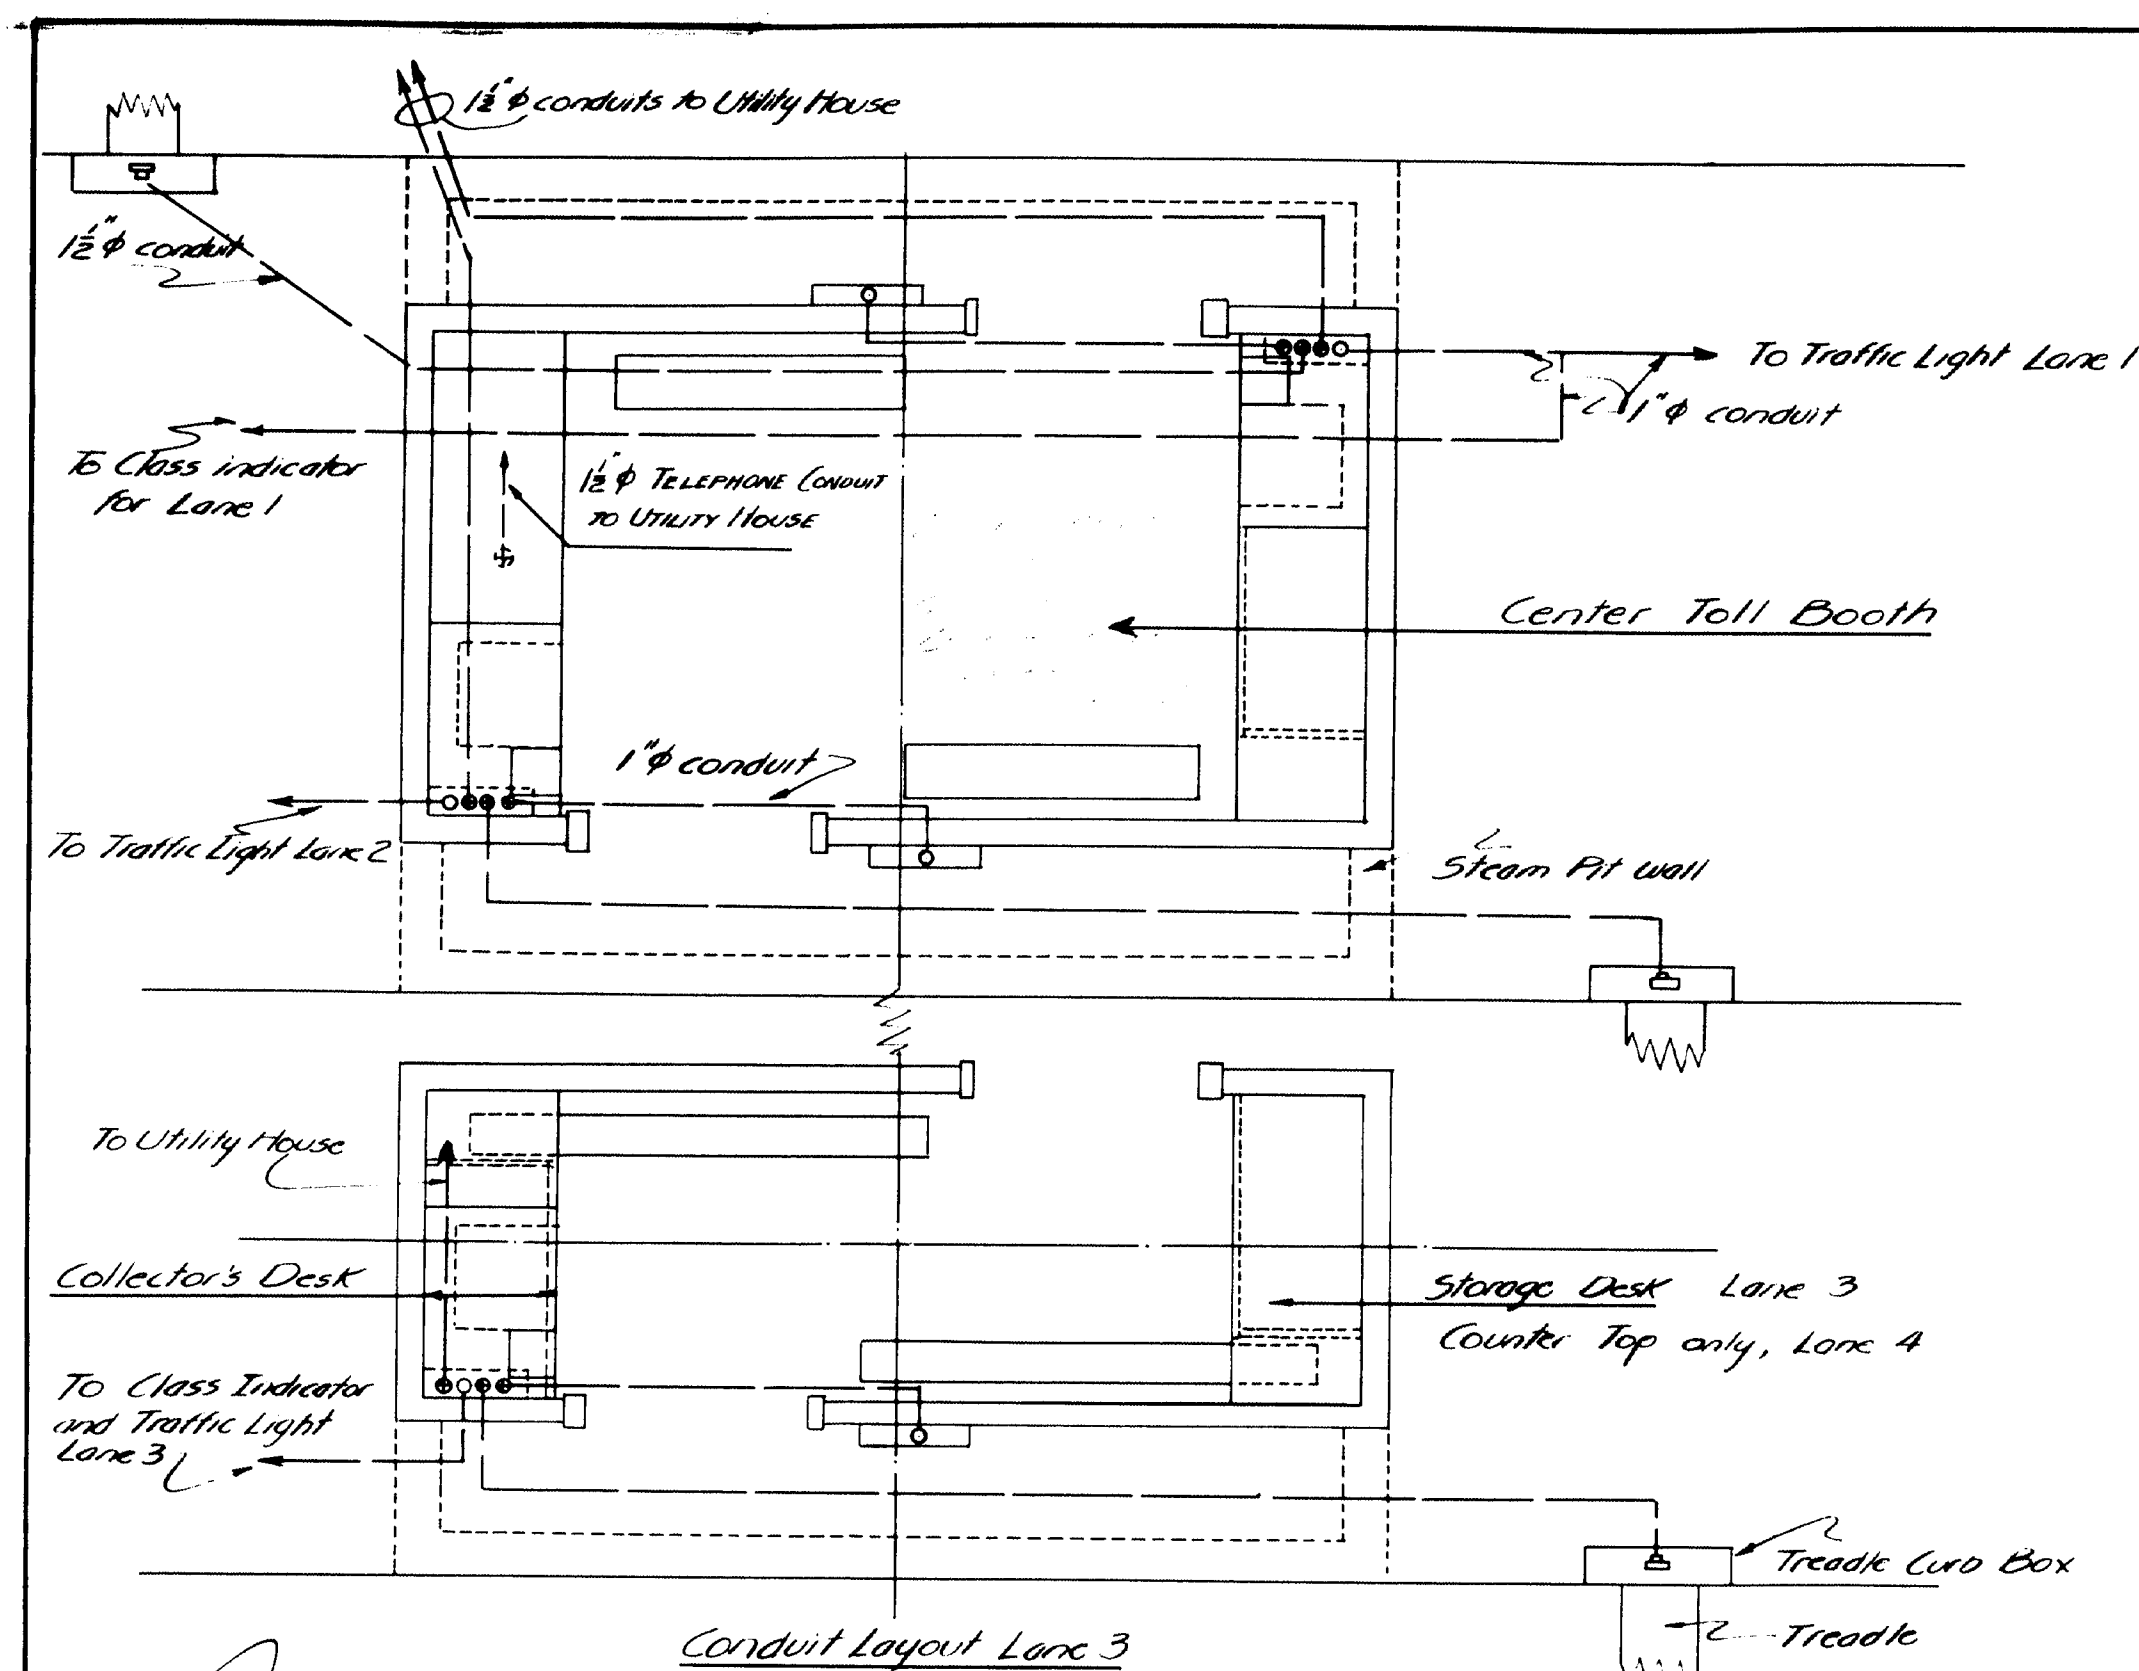 1½"ϕ conduits to Utility House
1½"ϕ conduit
To Traffic Light Lane 1
1"ϕ conduit
To Class indicator
for Lane 1
1½"ϕ TELEPHONE CONDUIT
TO UTILITY HOUSE
Center Toll Booth
1"ϕ conduit
To Traffic Light Lane 2
Steam Pit Wall
To Utility House
Collector's Desk
Storage Desk Lane 3
Counter Top only, Lane 4
To Class Indicator
and Traffic Light
Lane 3
Treadle Curb Box
Treadle
Conduit Layout Lane 3